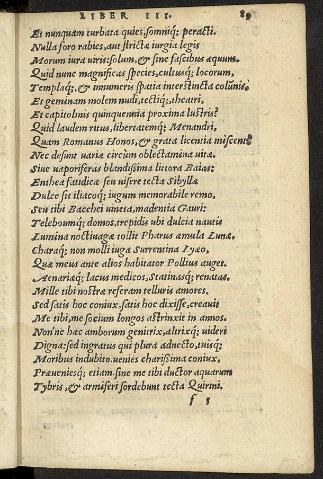 LIBER III. 89
Et nunquam turbata quies, somniq; peracti.
Nulla foro rabies, aut strictæ iurgia legis
Morum iura uiris: solum, & sine fascibus æquum.
Quid nunc magnificas species, cultusq; locorum,
Templaq;, & innumeris spatia interstincta colũnis.
Et geminam molem nudi, tectiq;, theatri,
Et capitolinis quinquennia proxima lustris?
Quid laudem ritus, libertatemq; Menandri,
Quam Romanus Honos, & grata licentia miscent?
Nec desunt uariæ circum oblectamina uitæ.
Siue uaporiferas blandissima littora Baias:
Enthea fatidicæ seu uisere tecta Sibyllæ
Dulce sit iliacoq; iugum memorabile remo.
Seu tibi Bacchei uineta, madentia Gauri:
Teleboumq; domos, trepidis ubi dulcia nautis
Lumina noctiuagæ tollit Pharus æmula Lunæ.
Charaq; non molli iuga Surrentina Lyæo,
Quæ meus ante alios habitator Pollius auget.
Aenariæq; lacus medicos, Statinasq; renatas.
Mille tibi nostræ referam telluris amores.
Sed satis hoc coniux. satis hoc dixisse, creauit
Me tibi, me socium longos astrinxit in annos.
Non'ne hæc amborum genitrix, altrixq; uideri
Digna: sed ingratus qui plura adnecto, tuisq;
Moribus indubito. uenies charissima coniux,
Præueniesq; etiam. sine me tibi ductor aquarum
Tybris, & armiferi sordebunt tecta Quirini.